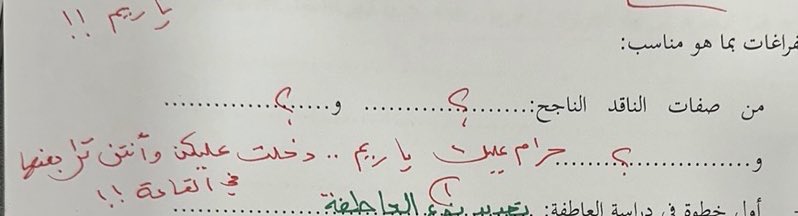 يا ريم !!
فراغات بما هو مناسب:
من صفات الناقد الناجح:...........؟........... و...........؟...........
و...........؟........... حرام عليك يا ريم .. دخلت عليكن وأنتن تراجعنها
في القاعة !!
أول خطوة في دراسة العاطفة: تحديد نوع العاطفة